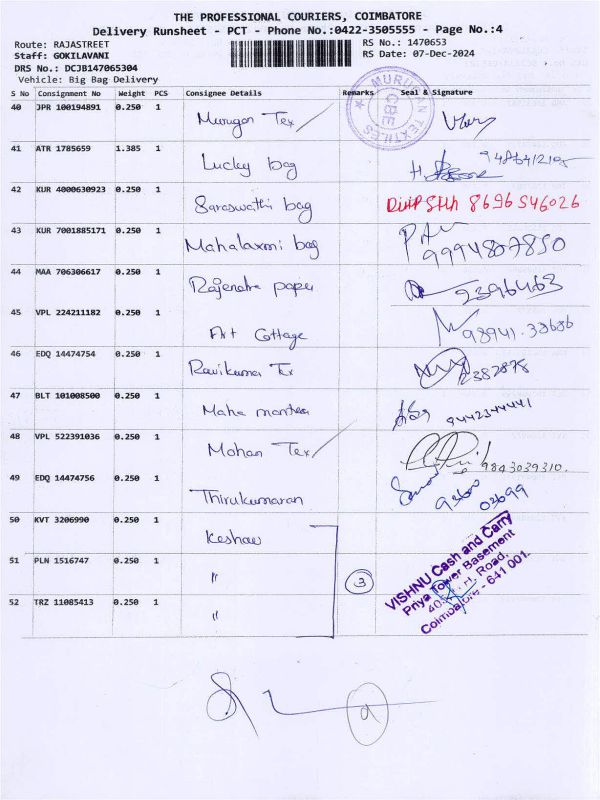 THE PROFESSIONAL COURIERS, COIMBATORE
Delivery Runsheet - PCT - Phone No.:0422-3505555 - Page No.:4
Route: RAJASTREET RS No.: 1470653
Staff: GOKILAVANI RS Date: 07-Dec-2024
DRS No.: DCJB147065304
Vehicle: Big Bag Delivery
S No Consignment No Weight PCS Consignee Details Remarks Seal & Signature
40 JPR 100194891 0.250 1 Murugan Tex
MURUGAN TEXTILES CBE
41 ATR 1785659 1.385 1 Lucky bag
42 KUR 4000630923 0.250 1 Saraswathi bag 8696546026
43 KUR 7001885171 0.250 1 Mahalaxmi bag 9994807850
44 MAA 706306617 0.250 1 Rajendra paper 2396463
45 VPL 224211182 0.250 1 Art Cottage
46 EDQ 14474754 0.250 1 Ravikumar Tex 2382878
47 BLT 101008500 0.250 1 Maha mantra 9442344441
48 VPL 522391036 0.250 1 Mohan Tex 9843039310.
49 EDQ 14474756 0.250 1 Thirukumaran
50 KVT 3206990 0.250 1 Keshav
51 PLN 1516747 0.250 1 " 3
52 TRZ 11085413 0.250 1 "
VISHNU Cash and Carry
Priya Tower Basement
Road,
Coimbatore - 641 001.